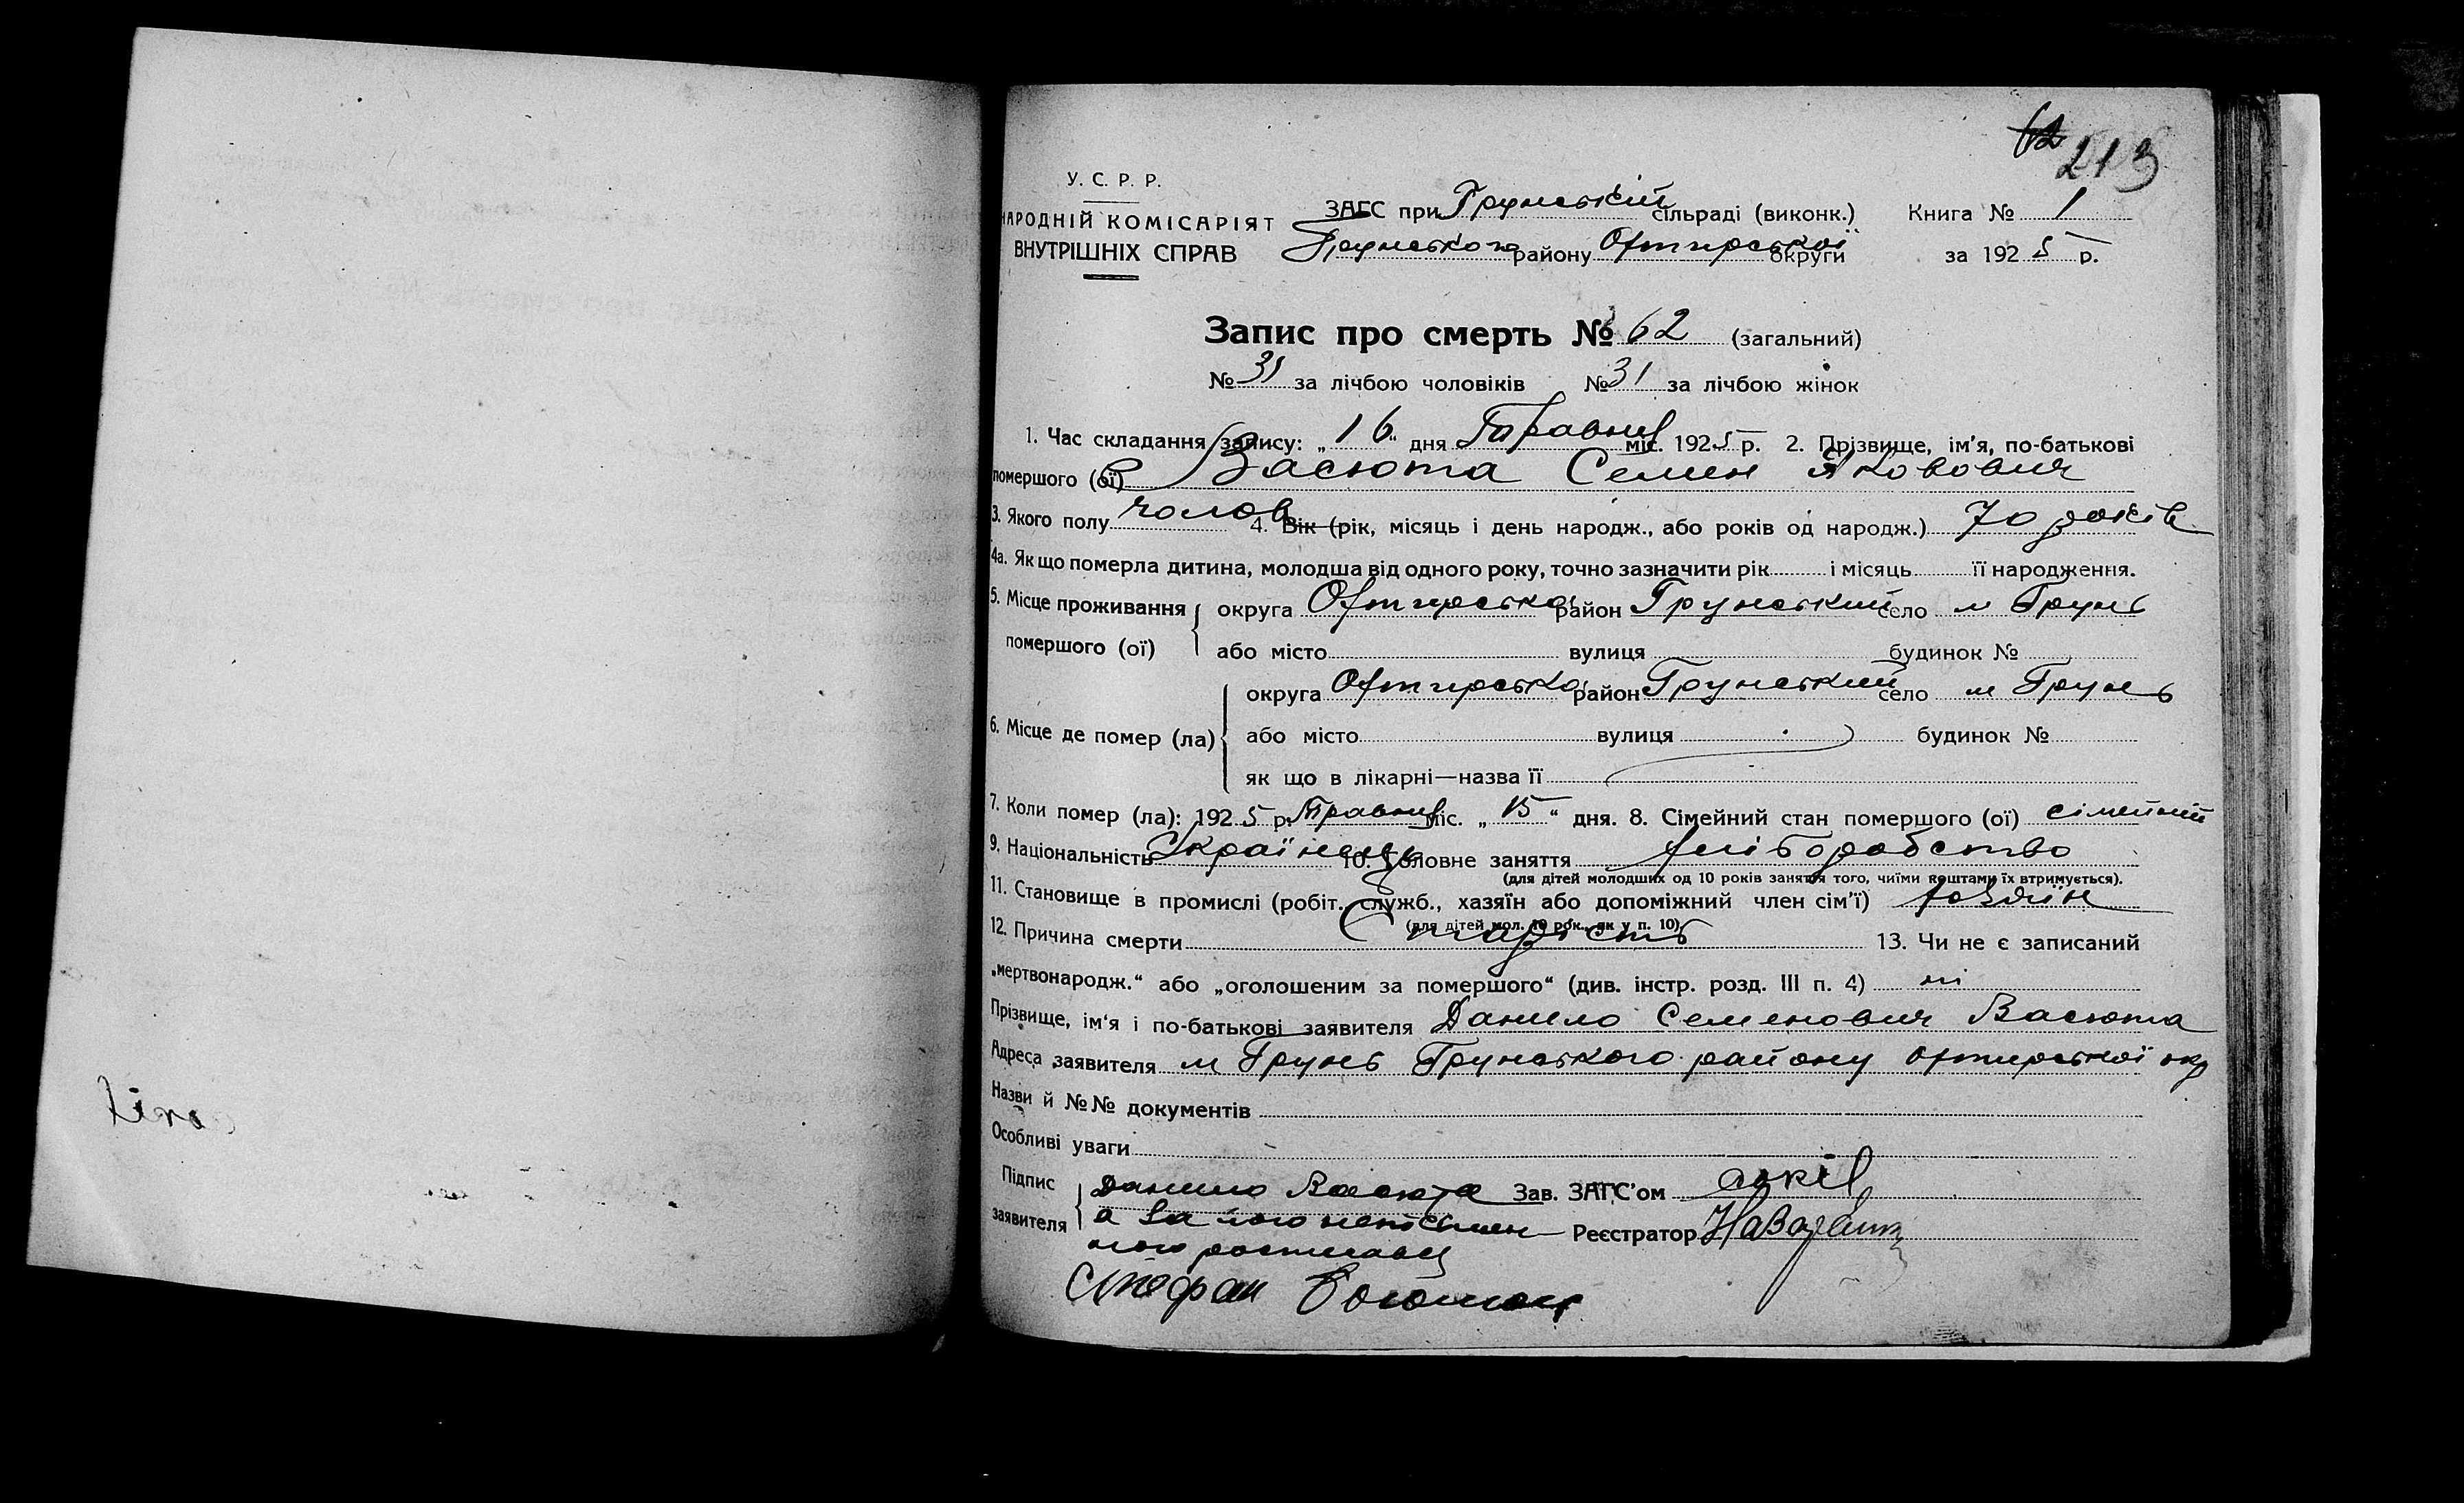 213
У. С. Р. Р.
НАРОДНІЙ КОМІСАРІЯТ
ВНУТРІШНІХ СПРАВ
ЗАГС при Грунській сільраді (виконк.)
Грунського району Охтирської округи
Книга № 1
за 1925 р.
Запис про смерть № 62 (загальний)
№ 31 за лічбою чоловіків № 31 за лічбою жінок
1. Час складання запису: „16“ дня Травня міс. 1925 р. 2. Прізвище, ім'я, по-батькові
помершого (ої) Васюта Семен Якович
3. Якого полу чолов 4. Вік (рік, місяць і день народж., або років од народж.) 70 років
4а. Як що померла дитина, молодша від одного року, точно зазначити рік і місяць її народження.
5. Місце проживання помершого (ої) округа Охтирська район Грунський село м Грунь
або місто вулиця будинок №
6. Місце де помер (ла) округа Охтирська район Грунський село м Грунь
або місто вулиця будинок №
як що в лікарні—назва її
7. Коли помер (ла): 1925 р. Травня міс. „15“ дня. 8. Сімейний стан помершого (ої) сімейний
9. Національність Українець 10. Головне заняття хліборобство
(для дітей молодших од 10 років заняття того, чиїми коштами їх втримується).
11. Становище в промислі (робіт., служб., хазяїн або допоміжний член сім'ї) хазяїн
(для дітей мол. 10 рок., як у п. 10)
12. Причина смерти Старість 13. Чи не є записаний
„мертвонародж.“ або „оголошеним за помершого“ (див. інстр. розд. III п. 4) ні
Прізвище, ім'я і по-батькові заявителя Данило Семенович Васюта
Адреса заявителя м Грунь Грунського району Охтирської окр
Назви й №№ документів
Особливі уваги
Підпис заявителя Данило Васюта Зав. ЗАГС'ом
а за його неписьмен Реєстратор
ного росписався
Стефан